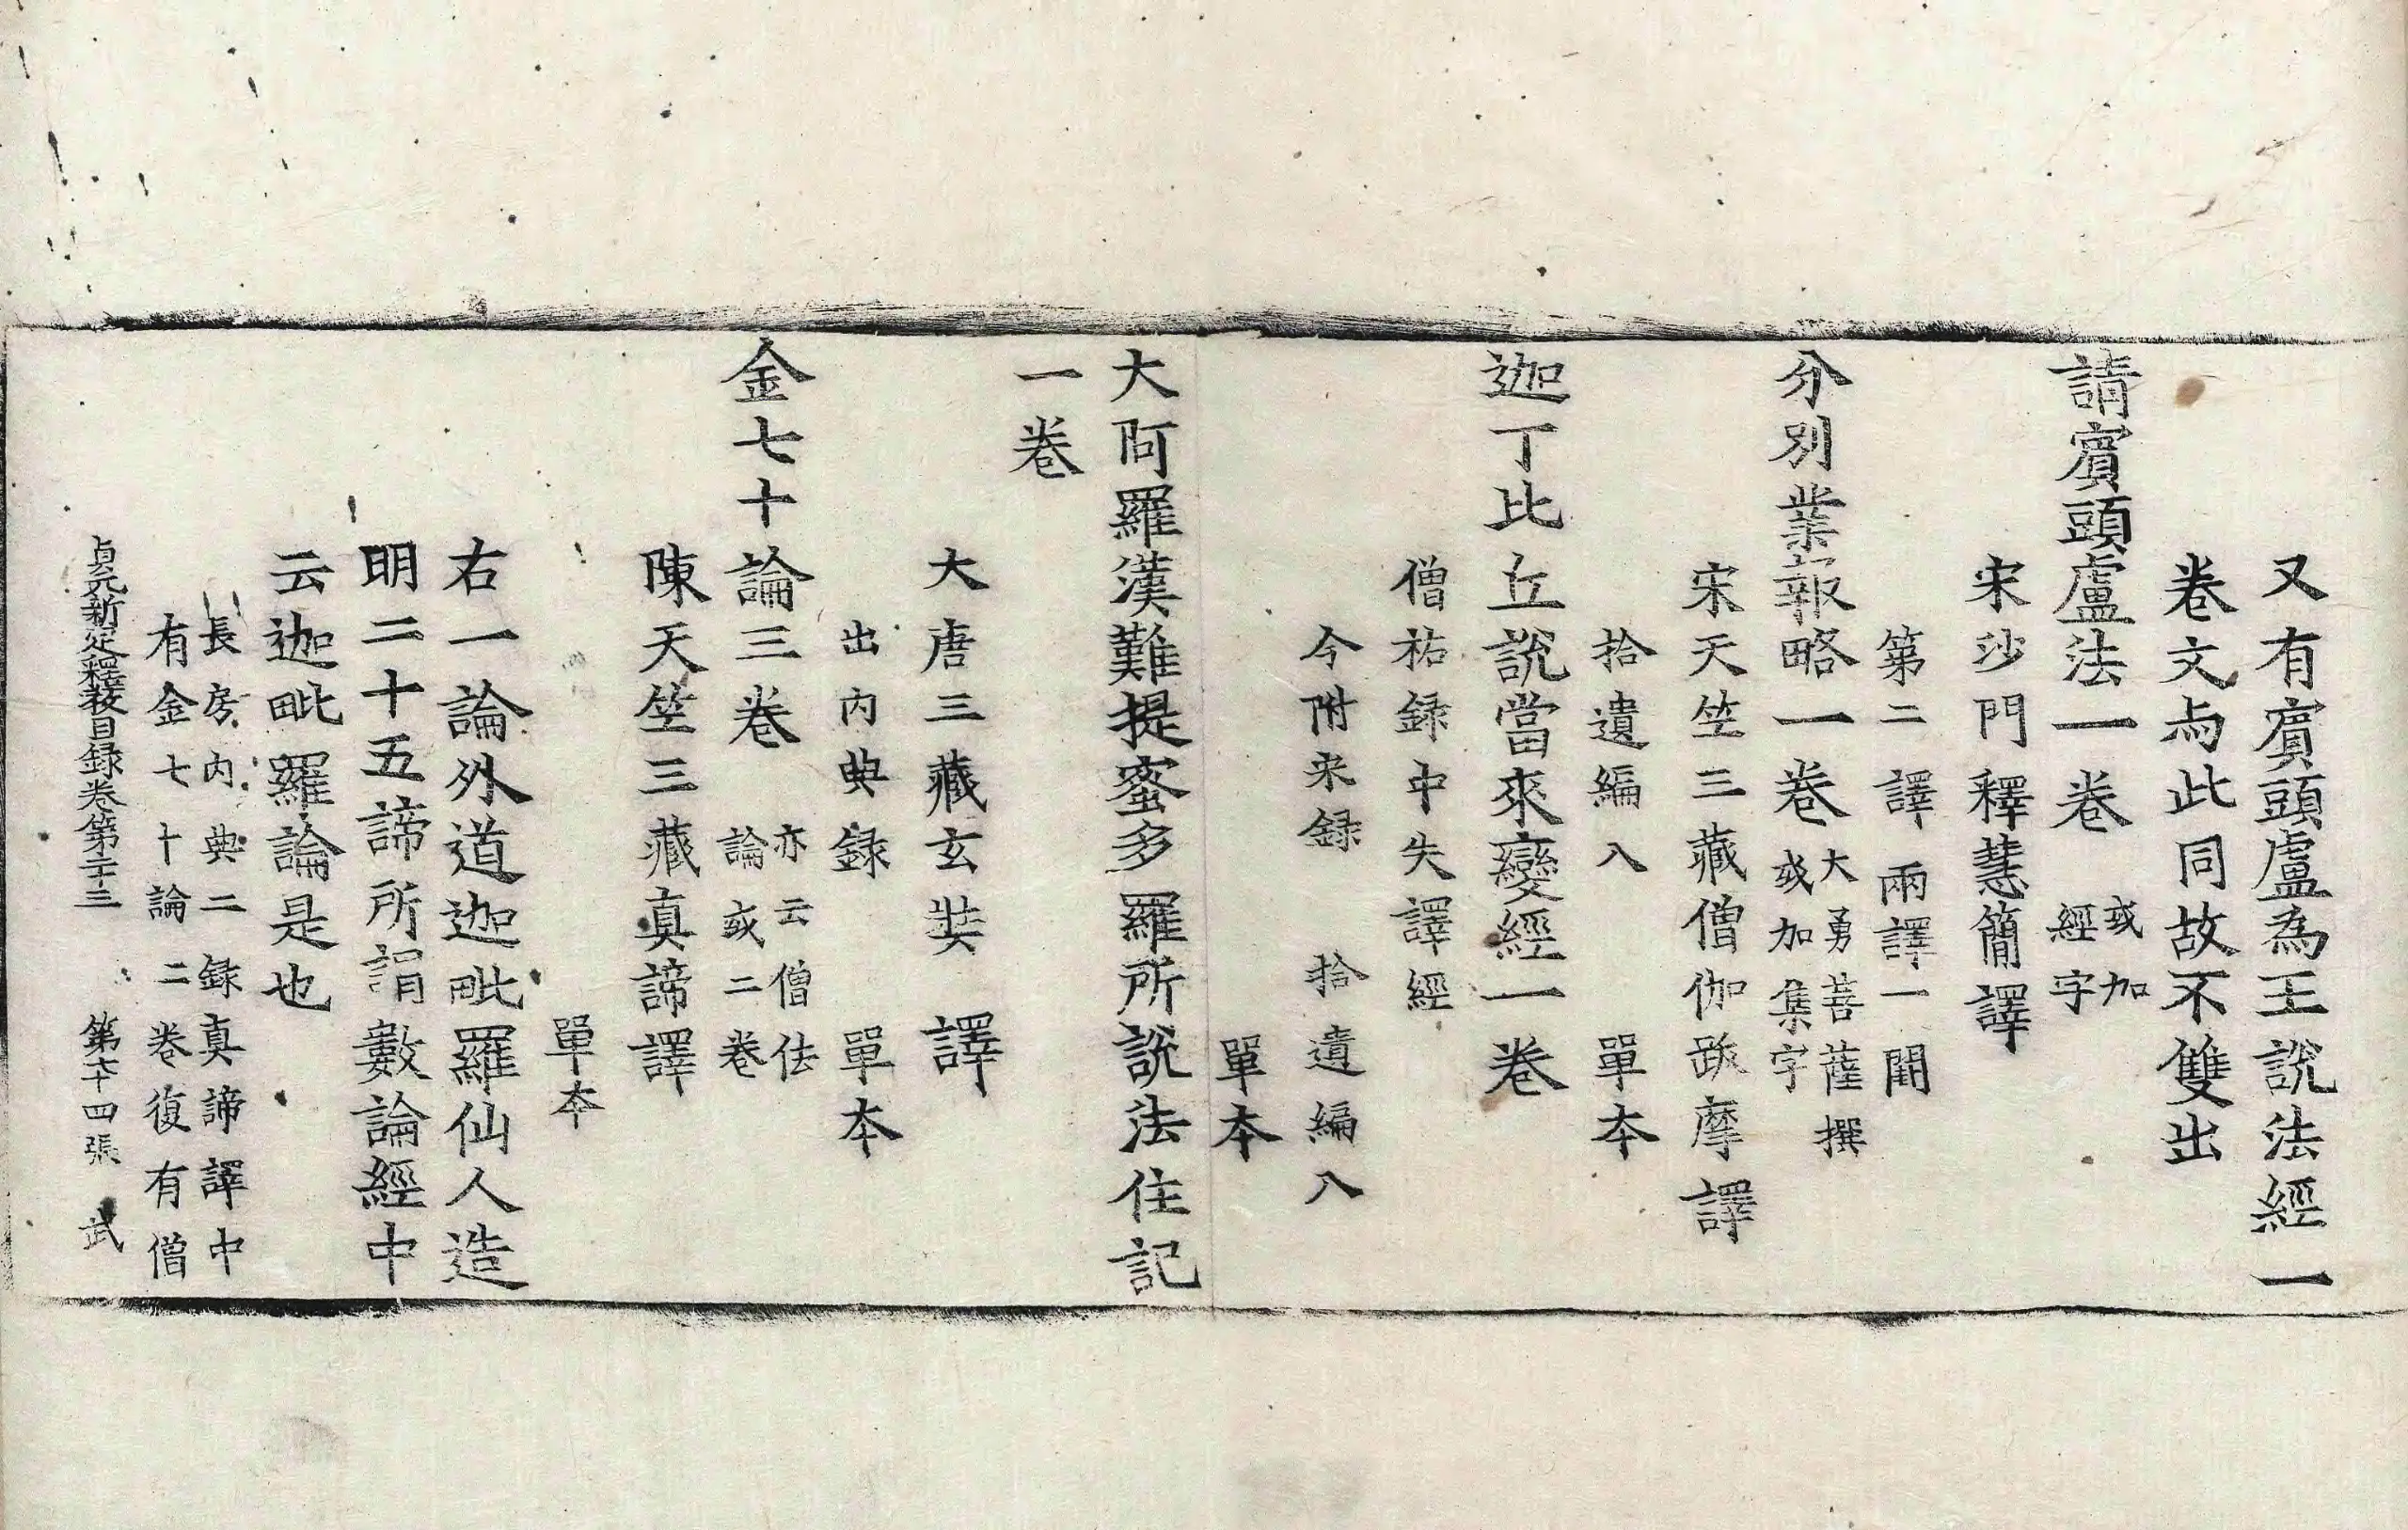 又有賔頭盧為王說法經一
卷文与此同故不雙出
請賔頭盧法一卷 或加經字
宋沙門釋慧簡譯
第二譯 兩譯一闕
分別業報略一卷 大勇菩薩撰或加集字
宋天竺三藏僧伽跋摩譯
拾遺編入 單本
迦丁比丘說當來變經一卷
僧祐錄中失譯經
今附宋録 拾遺編入
單本
大阿羅漢難提蜜多羅所說法住記
一卷
大唐三藏玄奘 譯
出內典録 單本
金七十論三卷 亦云僧佉論或二卷
陳天竺三藏真諦譯
單本
右一論外道迦毗羅仙人造
明二十五諦所謂數論經中
云迦毗羅論是也
長房內典二録真諦譯中
有金七十論二卷復有僧
貞元新定釋教目録卷第二十三 第六十四張 武